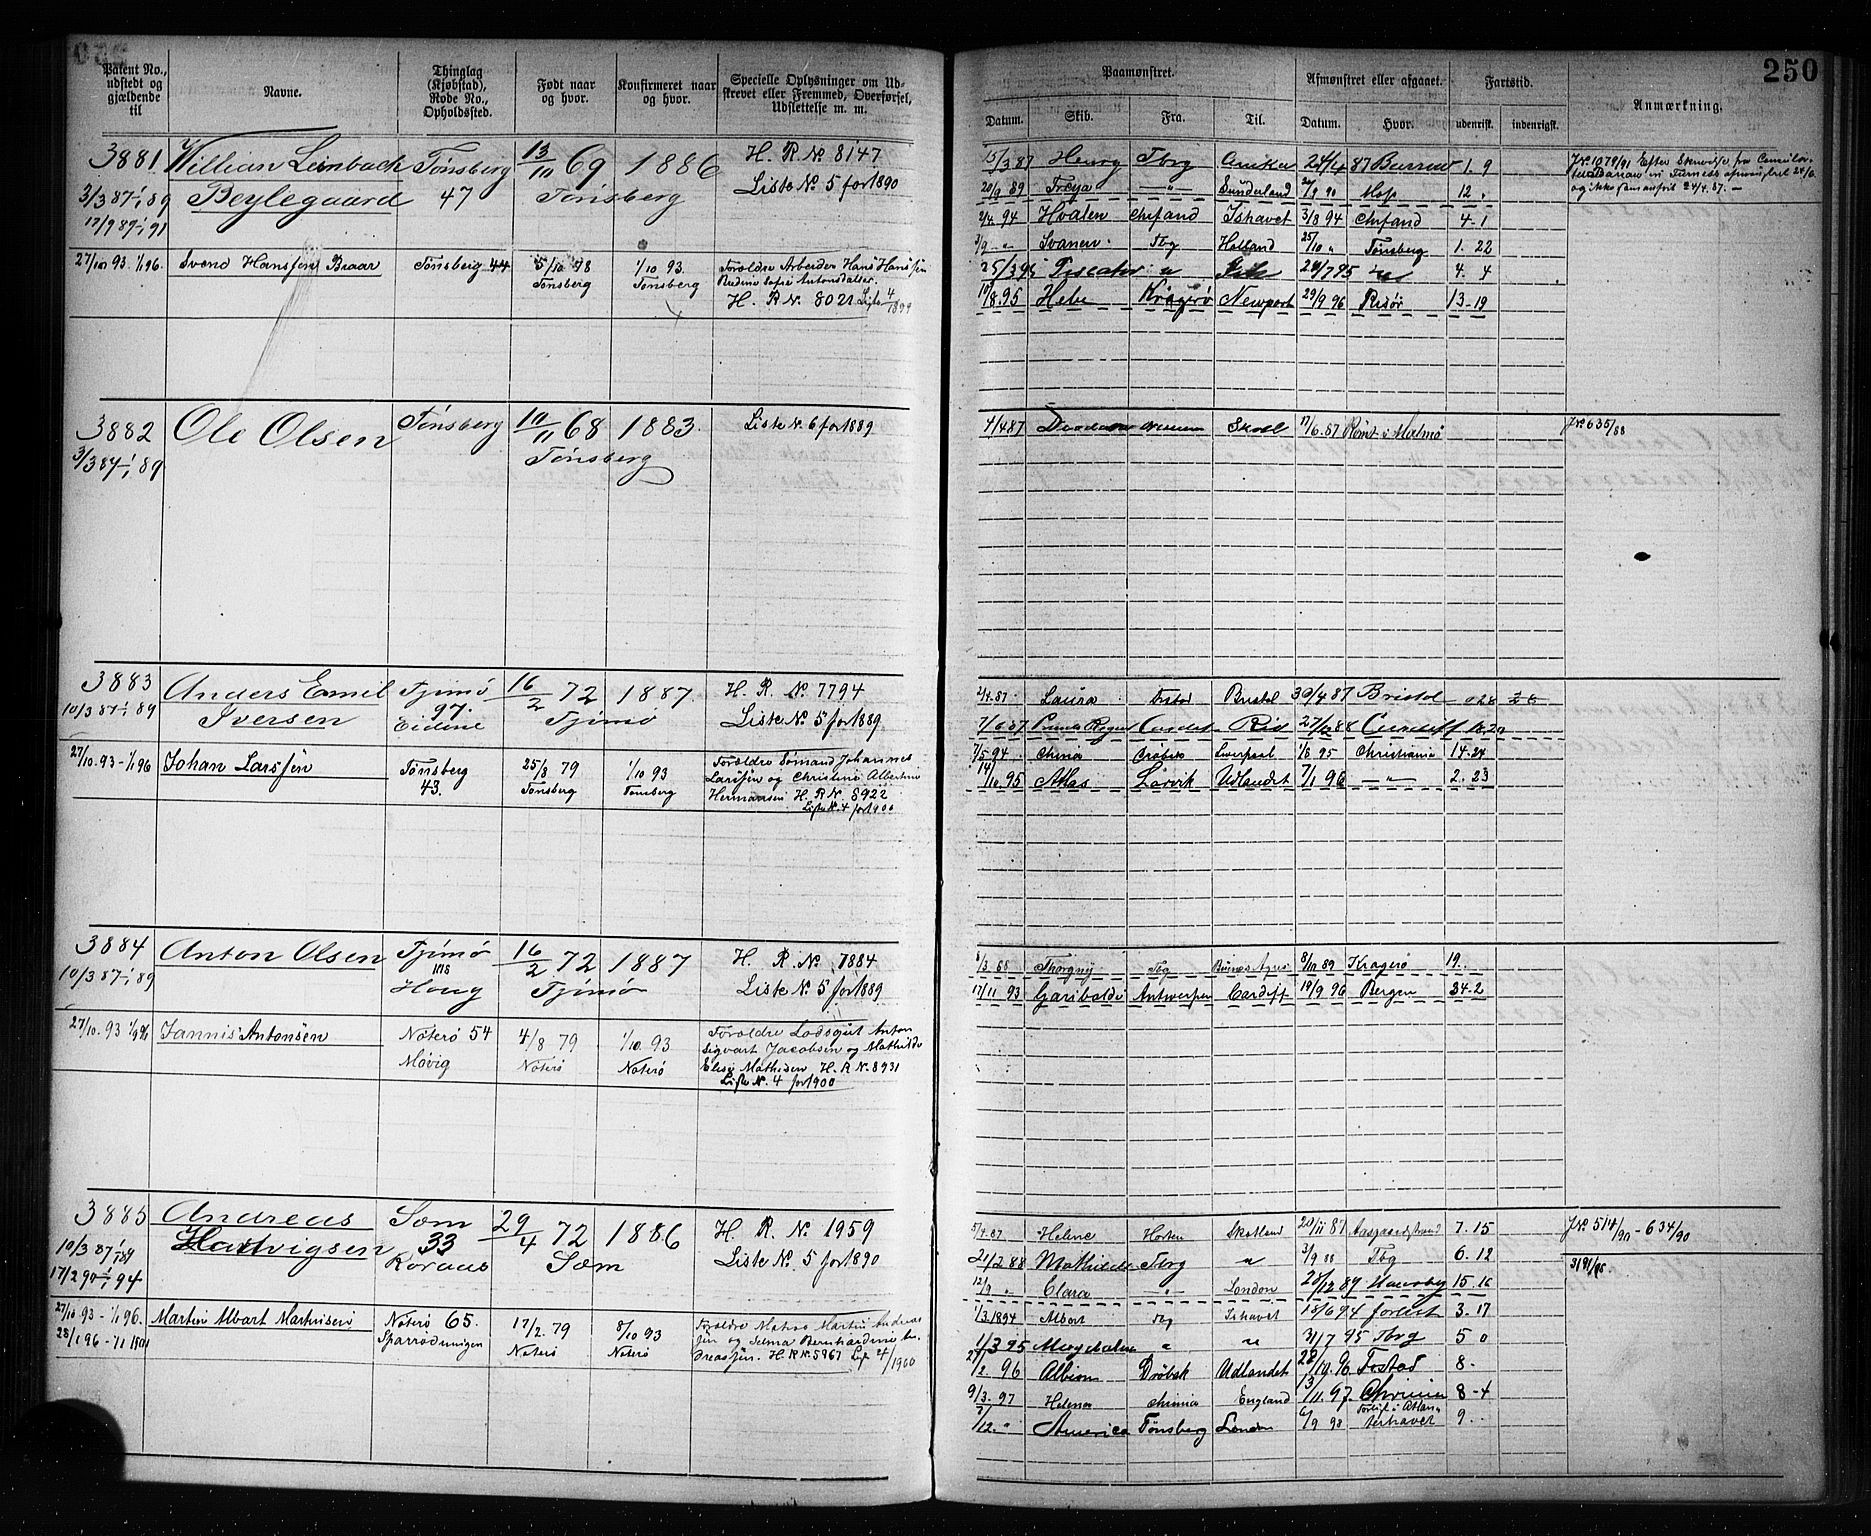 250
Patent No., udstedt og gjældende til
Navne.
Thinglag (Kjøbstad), Rode No., Opholdssted.
Født naar og hvor.
Konfirmeret naar og hvor.
Specielle Oplysninger om Udskrevet eller Fremmed, Overførsel, Udslettelse m. m.
Paamønstret.
Afmønstret eller afgaaet.
Fartstid.
Anmærkning.
Datum. Skib. Fra. Til. Datum. Hvor. udenrigs. indenrigsk.
3881 Tønsberg 13/10 69 1886 H. R. № 8147
3/3 87 1/1 89 Beylegaard 47 Tønsberg Liste № 5 for 1890
17/9 89 1/1 91
27/10 93. 1/1 96. Svend Hanssen Braar Tønsberg 44 5/10 78 1/10 93. Forældre Arbeider Hans Hanssen
Tønsberg Tønsberg
H. R. № 8021 Liste 4/1899
15/3 87 Henrg Tbrg 24/4 87 1. 9
20/9 89 Freya —"— Sunderland 12
2/4 94 Hvalen Ishavet 3/8 94 4. 1
3/9 " Svanen Tbg Holland 25/10 " Tønsberg 1. 22
25/3 95 " 4. 4
10/8 95 Hebe Kragerø Newport 29/9 96 Risør 13-19
3882 Ole Olsen Tønsberg 10/11 68 1883. Liste № 6 for 1889
3/3 87 1/1 89 Tønsberg
4/4 87 17/6 87 Rømt i Malmø J№ 635/88
3883 Anders Emil Tjømø 16/2 72 1887. H. R. № 7794
10/3 87 1/1 89 Iversen 97. Eidene Tjømø Liste № 5 for 1889
27/10. 93 - 1/1 96 Johan Larssen Tønsberg 25/8 79 1/10 93 Forældre Sømand Johannes
43. Tønsberg Tønsberg Larssen og Christine Albertine
Hermansen H. R. № 8922
Liste № 4 for 1900
2/4. 87 Laura Bristol 30/4 87 Bristol 028
7/6 87 27/10 88 Cardiff 18.20
7/5 94 China Liverpool 1/8 95 Christiania 14-24
14/10. 95 Atlas Larvik Udlandet 7/1 96 —"— 2. 23
3884 Anton Olsen Tjømø 16/2 72 1887 H. R. № 7884
10/3 87 1/1 89 Houg Tjømø Liste № 5 for 1889
27/10. 93 1/1 96 Jannis Antonsen Nøterø 54 4/8 79 1/10 93 Forældre Lodsgut Anton
Møvig Nøterø Nøterø Sigvart Jacobsen og Mathilde
Elise Mathisen H. R. № 8931
Liste № 4 for 1900
8/3 88 Thorgny Tbg Buenos Ayres 8/10 89 Kragerø 19.
17/11 93 Garibaldi Antwerpen Cardiff 19/9 96 Bergen 34-2
3885 Andreas Sem 29/4 72 1886 H. R. № 1959
10/3 87 1/1 89 Hartvigsen 33 Sem Liste № 5 for 1890
17/2 90 1/1 94
27/10. 93 - 1/1 96. Martin Albart Martinsen Nøterø 65. 17/2. 79 8/10 93 Forældre Matros Martin Andreas
28/1 96 - 1/1 1901 Nøterø Nøterø sen og Selma Bernhardine An
dreassen. H. R. № 5967 List 4/1900
5/4. 87 Helene Horten Skotland 20/11 87 Aasgaardstrand 7. 15 J№ 514/90 - 634/90
21/2 88 Mathilde Tbrg " 3/9 88 Tbg 6. 12
12/9 " Clara —"— London 28/12 89 15. 16
1/3. 1894 Albert Tbg Ishavet 18/6 94 forlist 3. 17
1/3 95 " " 31/7 95 Tbrg 5 0
2. 96 Albion Drøbak Udlandet 28/10. 96 8-
9/3. 97 Helene England 13/11. 97. 8-4
12. " America Tønsberg London 6/9 98 Forlist i Atlan-
terhavet 9